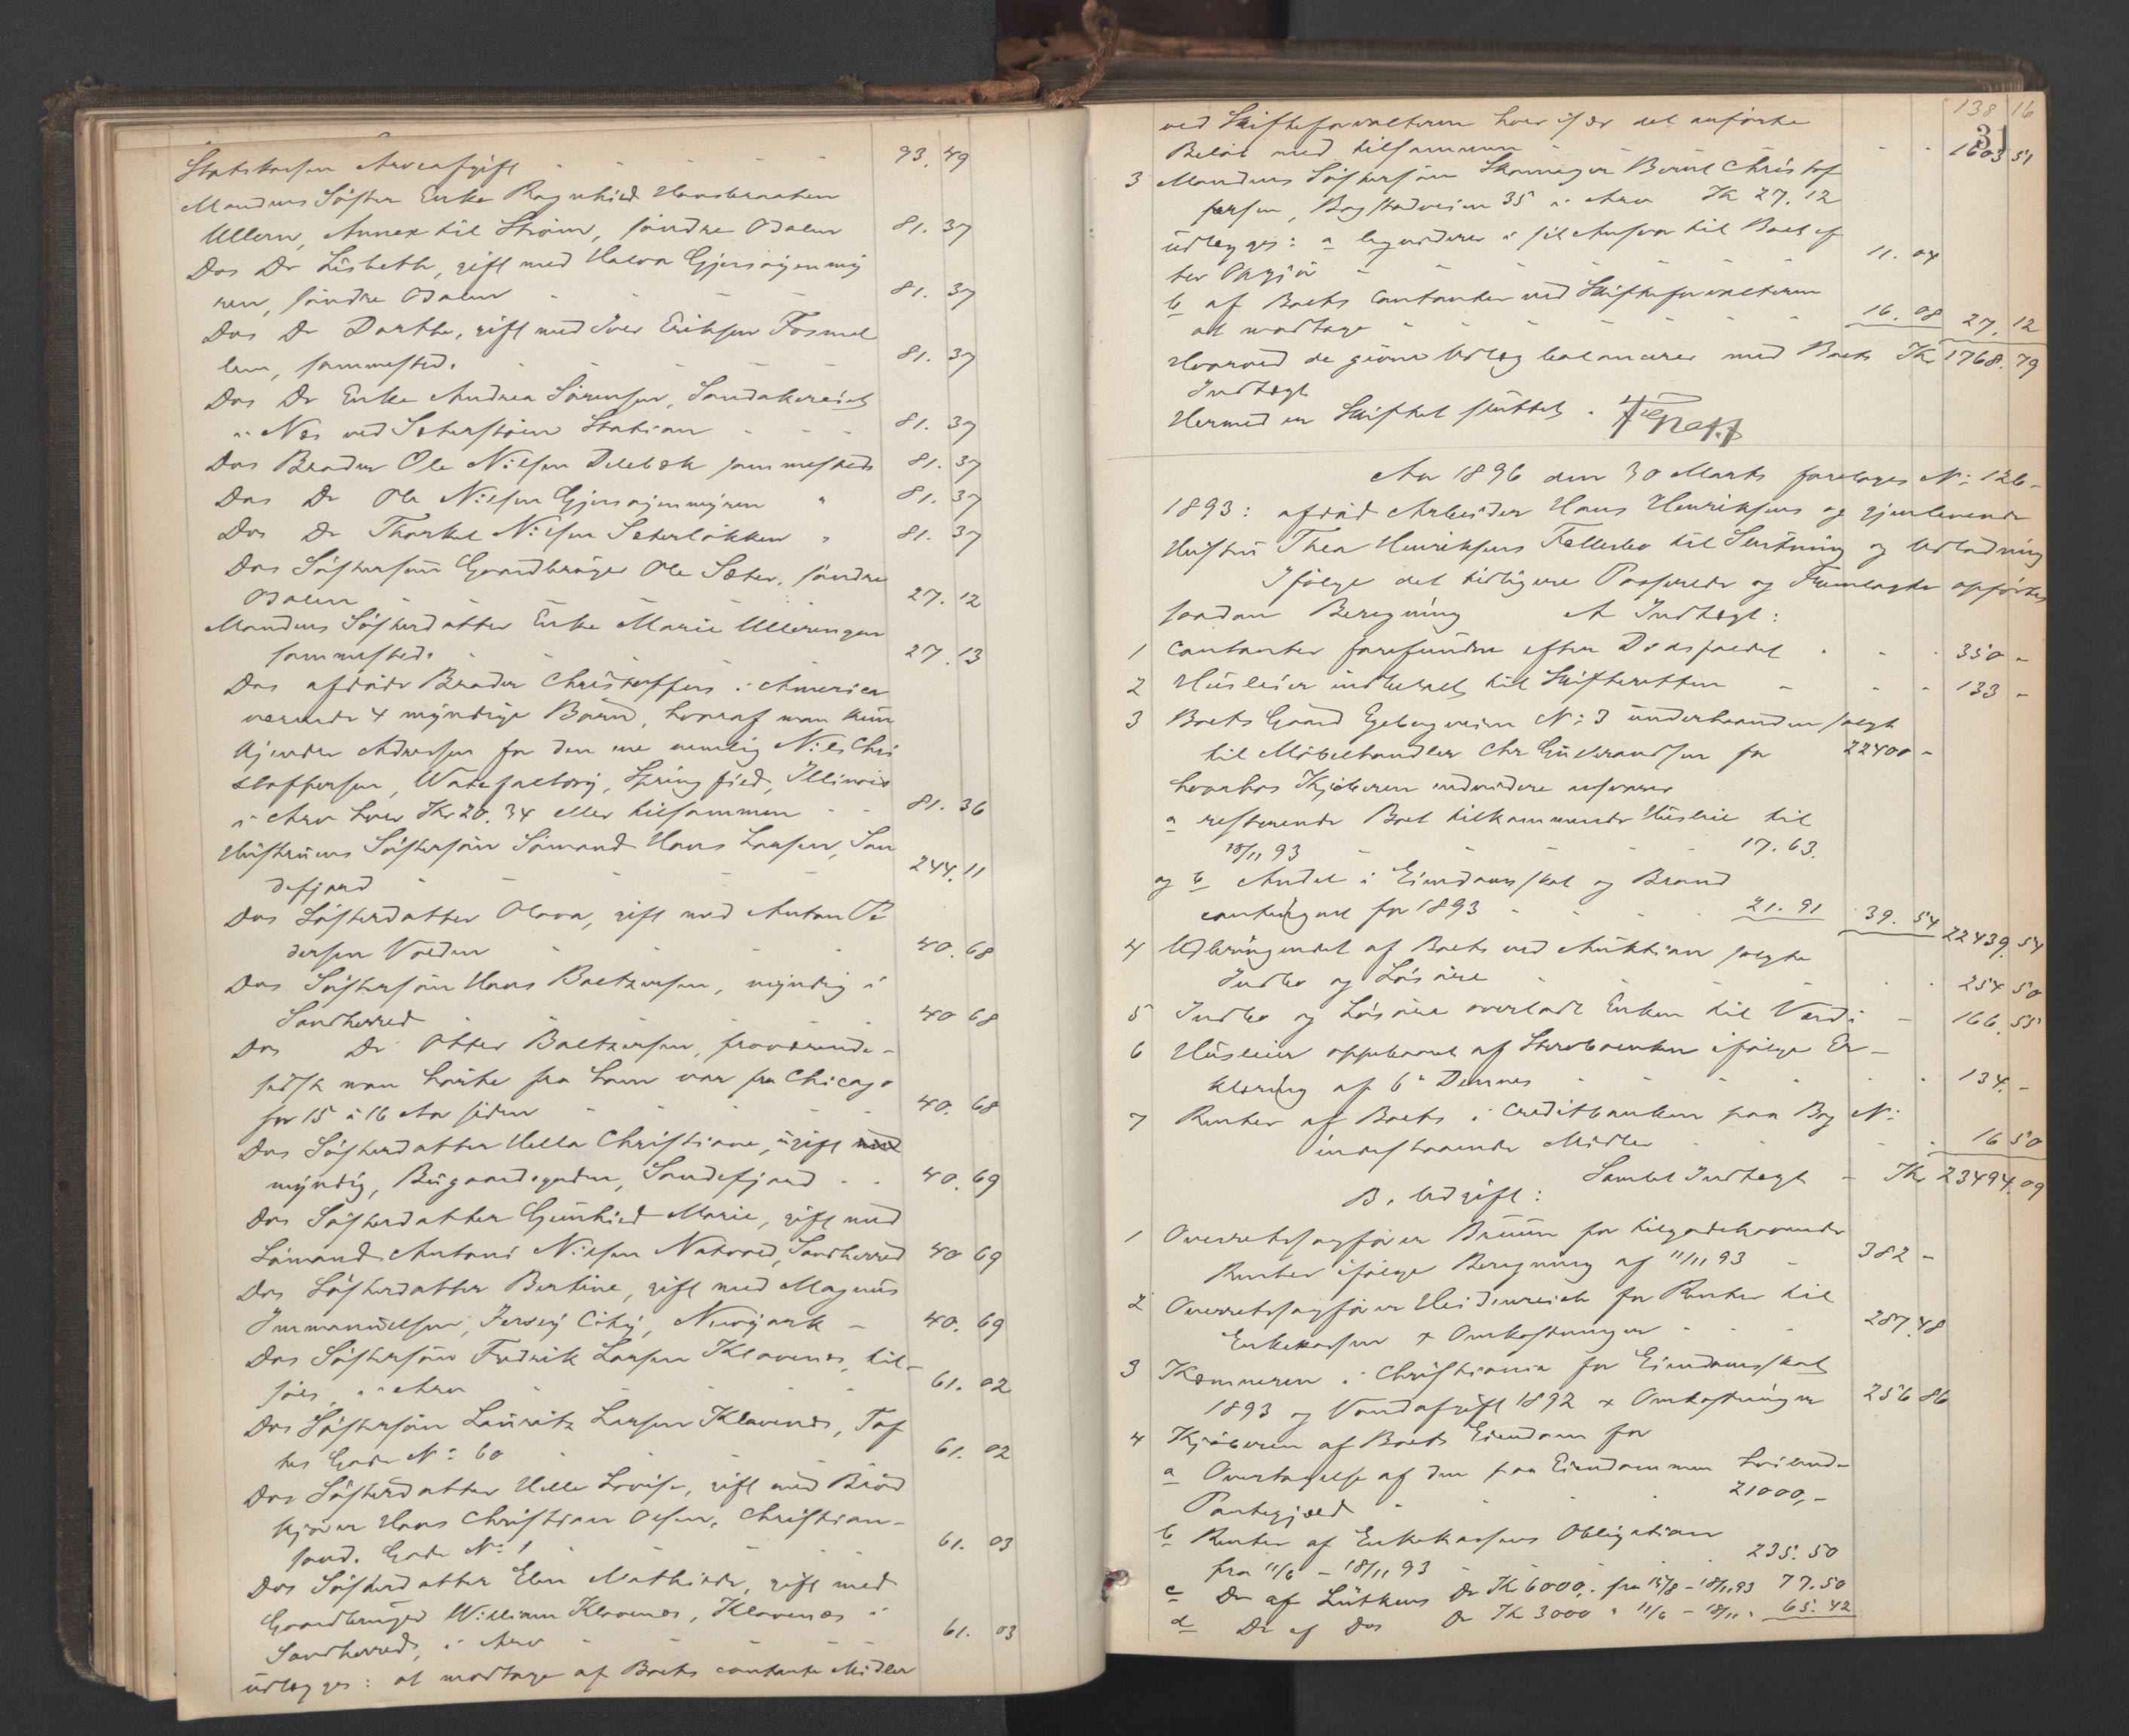 Statskassen Arveafgift - - - - 93. 49
Mandens Søster Enke Ragnhild Hansbraaten
Ullern, Annex til Strøm, søndre Odalen 81. 37
Dos Do Lisbeth, gift med Halvor Gjersøienmy
ren, søndre Odalen - - - 81. 37
Dos Do Dorthe, gift med Iver Eriksen Fosmel
len, sammesteds. - - - 81. 37
Dos Do Enke Andrea Sørensen, Sandakereiet
i Næs ved Sæterstøen Station - - - 81. 37
Dos Broder Ole Nilsen Dælebæk sammesteds 81. 37
Dos Do Ole Nilsen Gjersøienmyren " 81. 37
Dos Do Thorkel Nilsen Sæterløkken " 81. 37
Dos Søstersøn Gaardbruger Ole Sæter, søndre
Odalen - - - 27. 12
Mandens Søsterdatter Enke Marie Ullerengen
sammesteds. - - - 27. 13
Dos afdøde Broder Christoffers i America
værende 4 myndige Børn, hvoraf man kun
kjender Adressen for den ene nemlig Nils Chri
stoffersen, Springfield, Illinois
i Arv hver Kr 20. 34 eller tilsammen - - 81. 36
Hustruens Søstersøn Sømand Hans Larsen, San
defjord - - - 244. 11
Dos Søsterdatter Olava, gift med Anton Pe
dersen Valden - - - 40. 68
Dos Søstersøn Hans Baltzersen, myndig i
Sandherred - - - 40 68
Dos Do Otter Baltzersen, fraværende -
sidst man hørte fra ham var fra Chicago
for 15 à 16 Aar siden - - - 40. 68
Dos Søsterdatter Hella Christiane, ugift med
myndig, Bugaardsgaden, Sandefjord - - 40. 69
Dos Søsterdatter Gunhild Marie, gift med
Sømand Antoni Nilsen Natvold, Sandherred 40 69
Dos Søsterdatter Bertine, gift med Magnus
Immanuelsen, Jersey City, Newyork - 40. 69
Dos Søstersøn Fredrik Larsen Klavenes, til-
søes, i Arv - - - 61. 02
Dos Søstersøn Lauritz Larsen Klavenes, Tof
tes Gade No 60 - - - 61. 02
Dos Søsterdatter Helle Lovise, gift med Brød
kjører Hans Christian Olsen, Christian-
sand. Gade No 1 - - - 61. 03
Dos Søsterdatter Elen Mathilde, gift med
Gaardbruger William Klavenes, Klavenes i
Sandherred, i Arv - - - 61. 03
udlægges: at modtage af Boets contante Midler
138 16
31
ved Skifteforvalteren hver især det anførte
Beløb med tilsammen - - - 1603 51
3 Mandens Søstersøn Skomager Bernt Christof
fersen, Bogstadveien 35 i Arv Kr 27. 12
udlægges: a liqviderer i sit Ansvar til Boet ef
ter Opgjør - - - 11. 04
b af Boets Contanter ved Skifteforvalteren
at modtage - - - 16. 08 27. 12
Hvorved de givne Udlæg balancerer med Boets Kr 1768. 79
Indtægt
Hermed er Skiftet sluttet.
Aar 1896 den 30 Marts foretoges No 126-
1893: afdød Arbeider Hans Henriksens og gjenlevende
Hustru Thea Henriksens Fællesbo til Slutning og Udlodning
Ifølge det tidligere Passerede og Fremlagte opførtes
saadan Beregning A Indtægt:
1 Contanter forefundne efter Dødsfaldet - - - 350 -
2 Husleier indbetalt til Skifteretten - - - 133 -
3 Boets Gaard Egebergveien No 3 underhaanden solgt
til Møbelhandler Chr Gulbrandsen for 22400 -
hvorhos Kjøberen endvidere ansvarer
a resterende Boet tilkommende Husleie til
18/11 93 - - - 17. 63.
og b Andel i Eiendomsskat og Brand
contingent for 1893 - - - 21. 91 39. 54 22439. 54
4 Udbringendet af Boets ved Auktion solgte
Indbo og Løsøre - - - 254 50
5 Indbo og Løsøre overladt Enken til Værdi - 166. 55
6 Husleier oppebaaret af Stervboenken ifølge Er-
klæring af 6te Dennes - - - 134. -
7 Renter af Boets i Creditbanken paa Bog No
indestaaende Midler - - - 16 50
Samlet Indtægt - Kr 23494. 09
B. Udgift:
1 Overretssagfører Bruun for tilgodehavende
Renter ifølge Beregning af 11/11 93 - 382 -
2 Overretssagfører Heidenreich for Renter til
Enkekassen + Omkostninger - - - 287. 48
3 Kæmneren i Christiania for Eiendomsskat
1893 og Vandafgift 1892 + Omkostninger 256 86
4 Kjøberen af Boets Eiendom for
a Overtagelse af den paa Eiendommen hvilende
Pantegjæld - - - 21000, -
b Renter af Enkekassens Obligation
fra 11/6 - 18/11 93 - - - 235. 50
c Do af Lütkens Do Kr 6000, fra 15/8 - 18/11 93 77. 50
d Do af Dos Do Kr 3000 " 11/6 - 18/11 " 65. 42